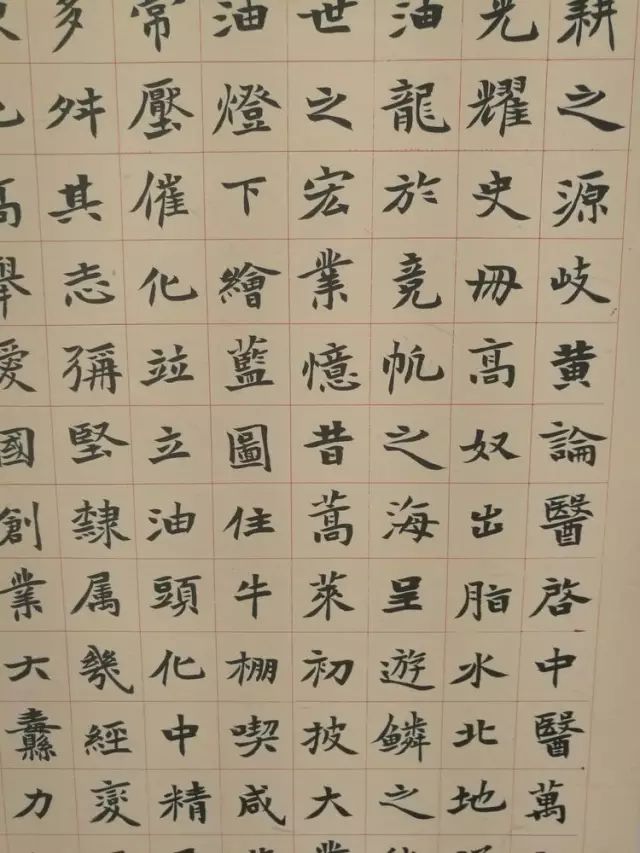 耕之源岐黄論醫啓中醫萬
光耀史冊高奴出脂水北地
油龍於竟帆之海呈遊鱗之
世之宏業憶昔蒿萊初披大
油燈下繪藍圖住牛棚喫咸
常壓催化並立油頭化中精
多舛其志彌堅隸属幾經變
高舉愛國創業大纛縣力